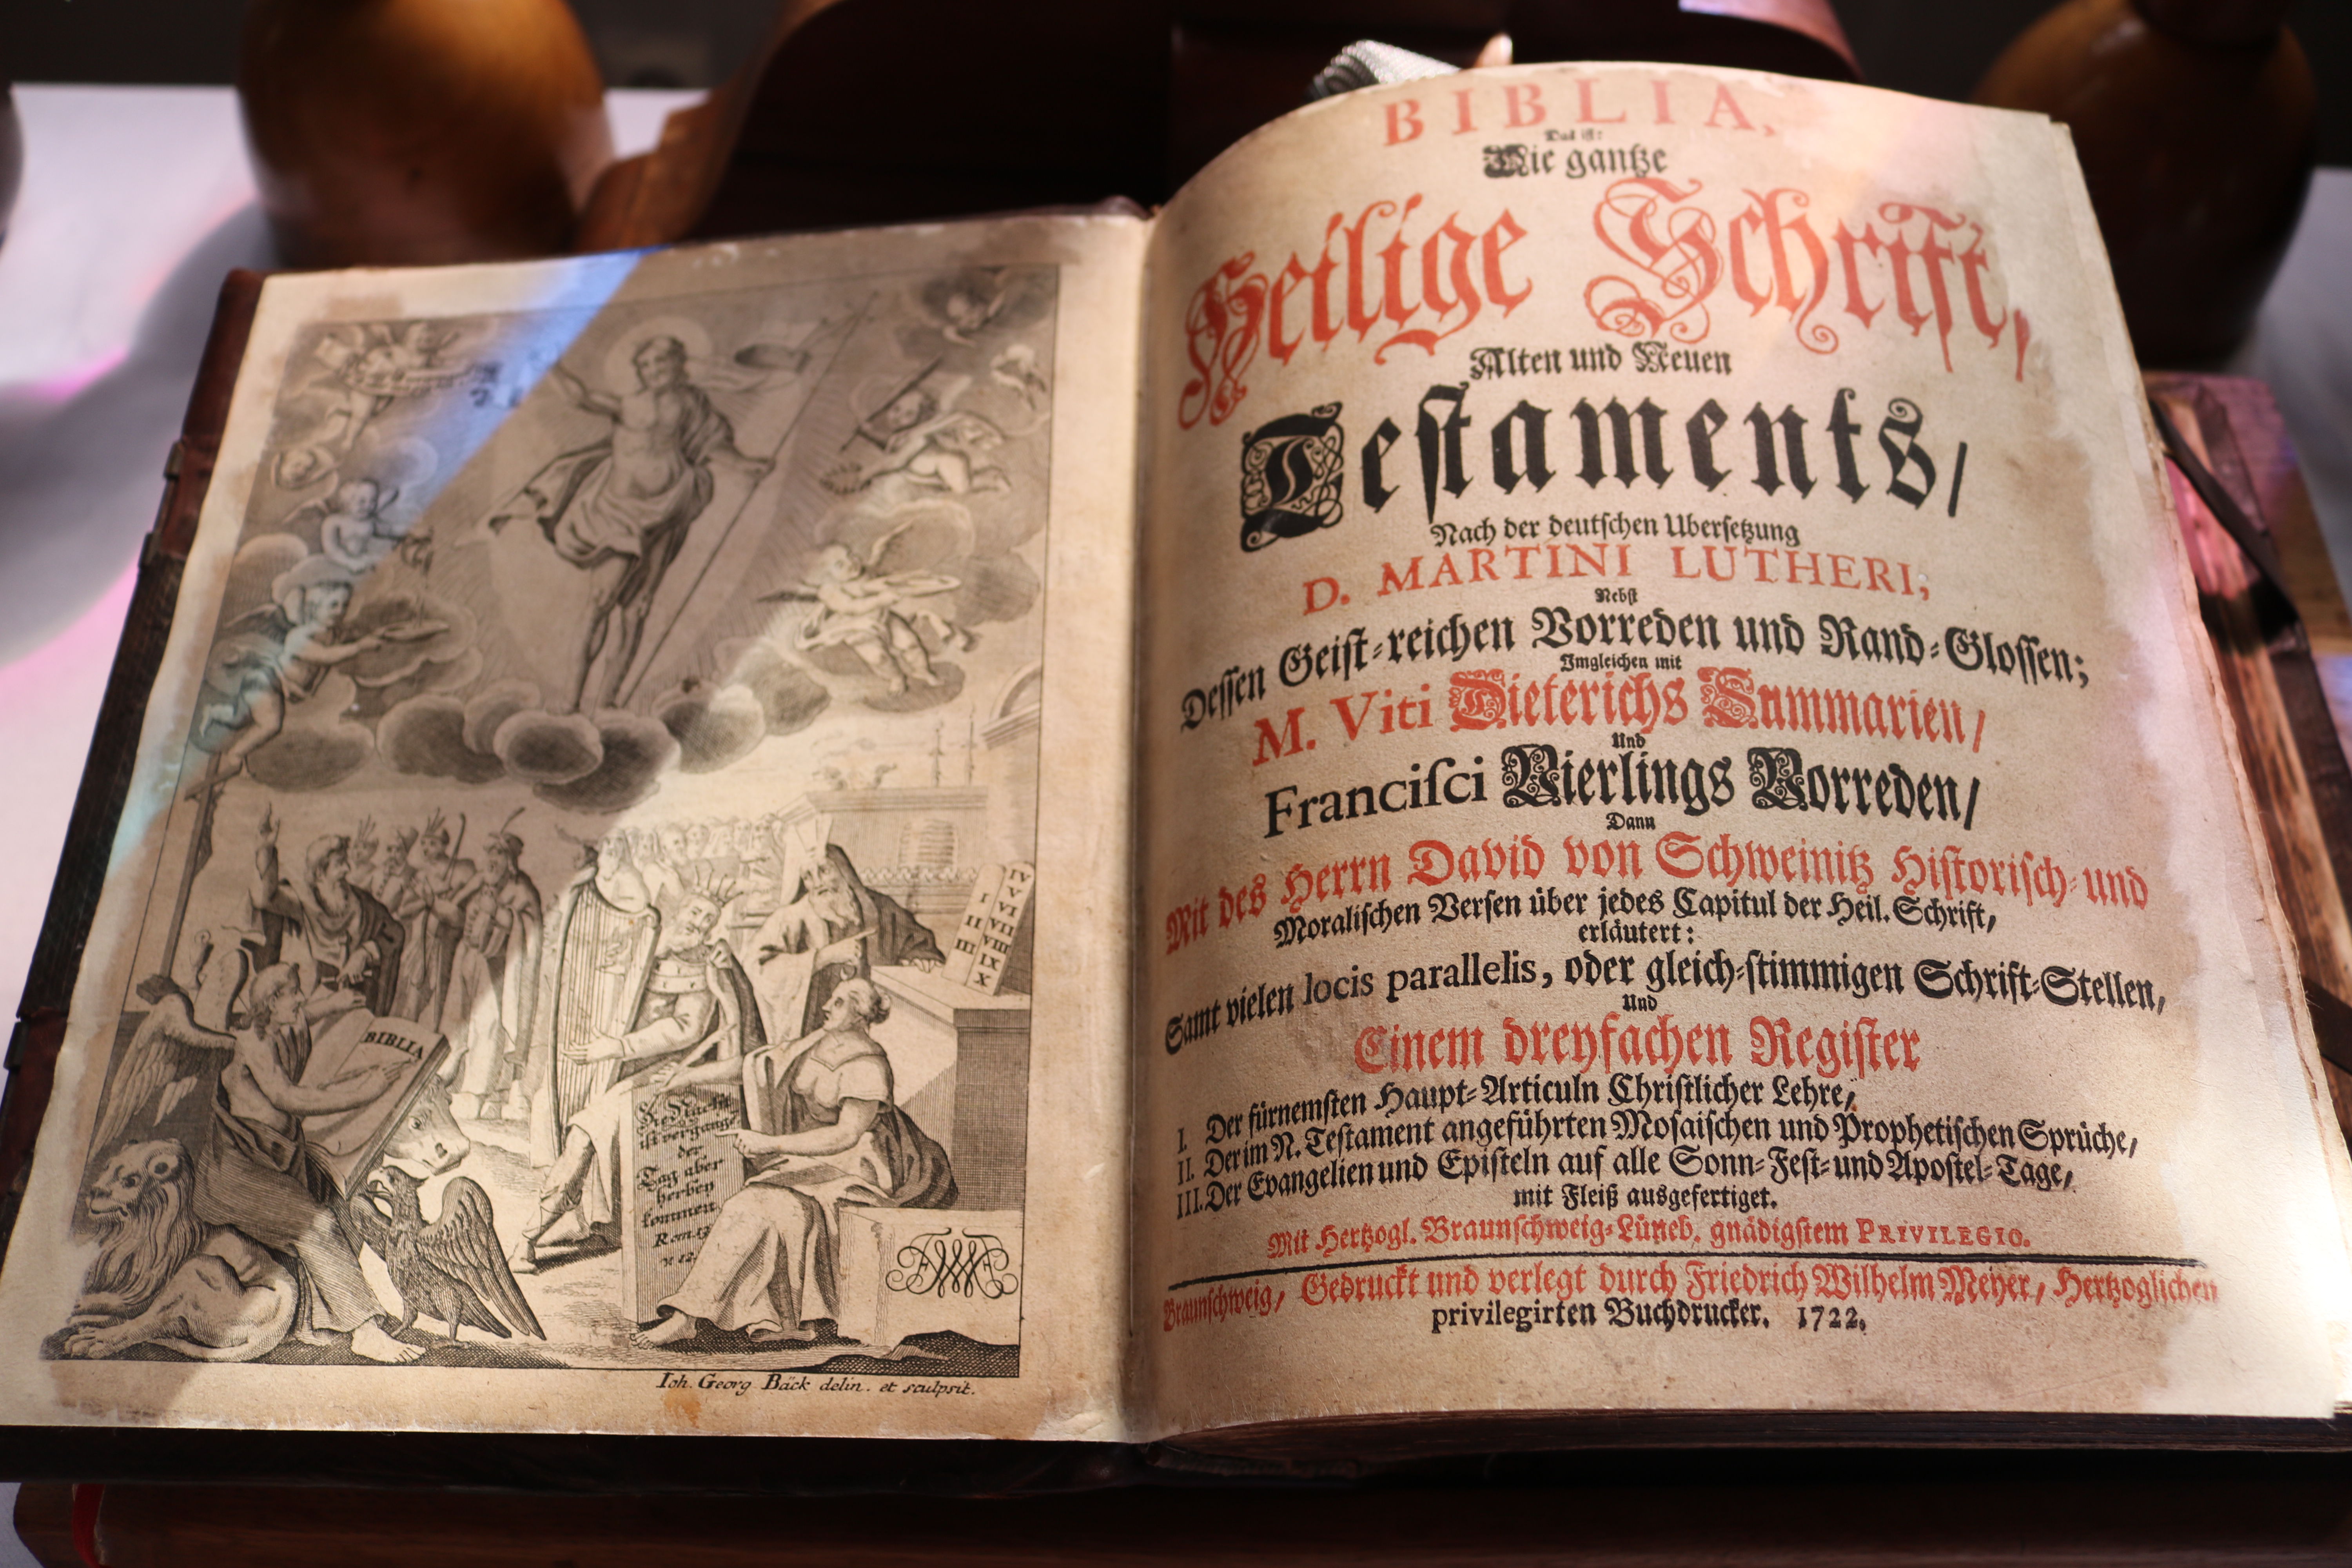 BIBLIA
IV
V
I VI
II VII
III VIII
IX
X
Die Nacht
ist vergangē
der
Tag aber
herbey
kommen
Rom. 13
v 12.
Ioh. Georg Bäck delin. et sculpsit.
BIBLIA,
Das ist:
Die gantze
Heilige Schrift,
Alten und Neuen
Testaments/
Nach der deutschen Ubersetzung
D. MARTINI LUTHERI;
Nebst
Dessen Geist-reichen Vorreden und Rand-Glossen;
Imgleichen mit
M. Viti Dieterichs Summarien/
Und
Francisci Vierlings Vorreden/
Dann
Mit des Herrn David von Schweinitz Historisch-und
Moralischen Versen über jedes Capitul der Heil. Schrift,
erläutert:
Samt vielen locis parallelis, oder gleich-stimmigen Schrift-Stellen,
Und
Einem dreyfachen Register
I. Der fürnemsten Haupt-Articuln Christlicher Lehre,
II. Der im N. Testament angeführten Mosaischen und Prophetischen Sprüche,
III. Der Evangelien und Episteln auf alle Sonn-Fest-und Apostel-Tage,
mit Fleiß ausgefertiget.
Mit Hertzogl. Braunschweig-Lüneb. gnädigstem PRIVILEGIO.
Braunschweig, Gedruckt und verlegt durch Friedrich Wilhelm Meyer, Hertzoglichen
privilegirten Buchdrucker. 1722.